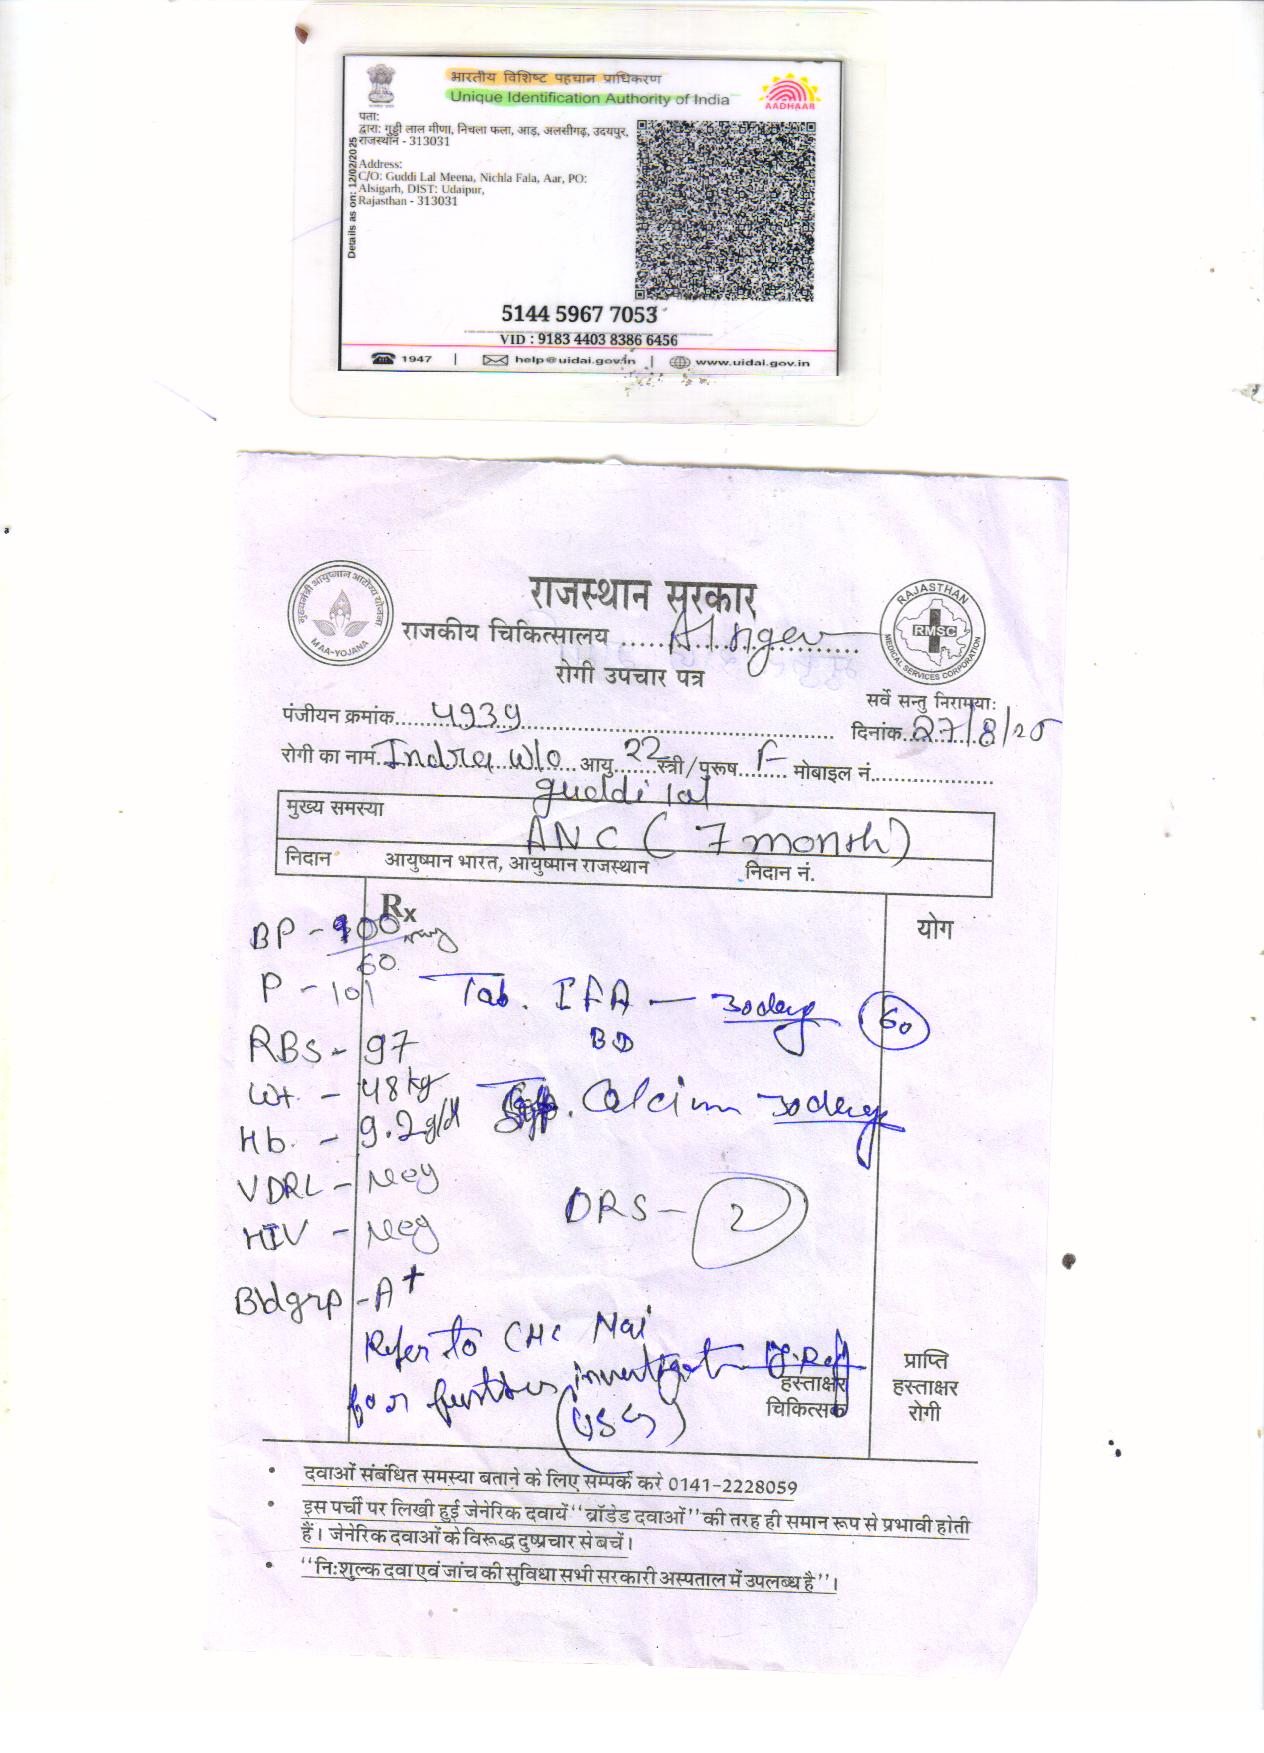 भारतीय विशिष्ट पहचान प्राधिकरण
Unique Identification Authority of India
AADHAAR
पता:
द्वारा: गुड्डी लाल मीणा, निचला फला, आड़, अलसीगढ़, उदयपुर,
राजस्थान - 313031
Address:
C/O: Guddi Lal Meena, Nichla Fala, Aar, PO:
Alsigarh, DIST: Udaipur,
Rajasthan - 313031
Details as on: 12/02/2025
5144 5967 7053
VID : 9183 4403 8386 6456
1947 | help@uidai.gov.in | www.uidai.gov.in
मुख्यमंत्री आयुष्मान आरोग्य योजना
MAA-YOJANA
राजस्थान सरकार
राजकीय चिकित्सालय
RAJASTHAN
RMSC
MEDICAL SERVICES CORPORATION
रोगी उपचार पत्र
सर्वे सन्तु निरामया:
पंजीयन क्रमांक 4939
दिनांक 27/8/25
रोगी का नाम Indra w/o आयु 22 स्त्री/पुरूष F मोबाइल नं.
guddi lal
मुख्य समस्या ANC (7 month)
निदान आयुष्मान भारत, आयुष्मान राजस्थान निदान नं.
Rx
योग
BP - 100/60 mmhg
P - 101
Tab. IFA - 30 days 60
BD
RBS - 97
Wt. - 48 kg
Calcium 30 days
Hb. - 9.2 g/dl
VDRL - Neg
ORS - 2
HIV - Neg
Bldgrp - A+
Refer to CHC Nai
for further investigation
(USG)
हस्ताक्षर
चिकित्सक
प्राप्ति
हस्ताक्षर
रोगी
• दवाओं संबंधित समस्या बताने के लिए सम्पर्क करे 0141-2228059
• इस पर्ची पर लिखी हुई जेनेरिक दवायें ''ब्रॉडेड दवाओं'' की तरह ही समान रूप से प्रभावी होती
हैं। जेनेरिक दवाओं के विरूद्ध दुष्प्रचार से बचें।
• ''नि:शुल्क दवा एवं जांच की सुविधा सभी सरकारी अस्पताल में उपलब्ध है''।